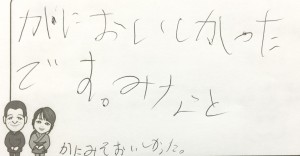 がにおいしかった
です。みなと
かにみそおいしかった。